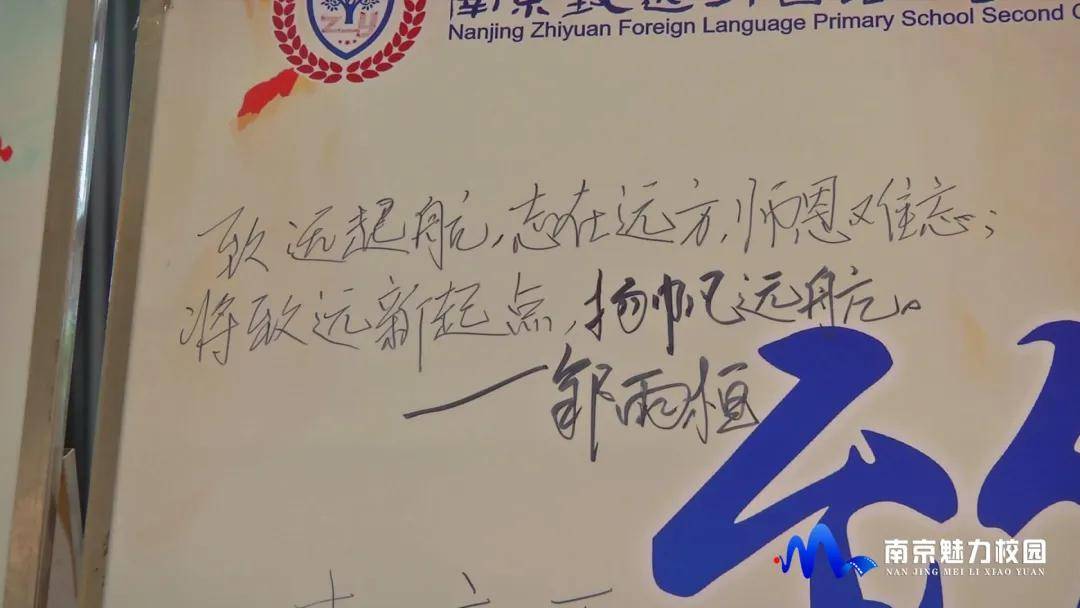 Nanjing Zhiyuan Foreign Language Primary School Second
致远起航,志在远方,师恩难忘;
将致远新起点,扬帆远航。
——邹雨桓
南京魅力校园
NAN JING MEI LI XIAO YUAN